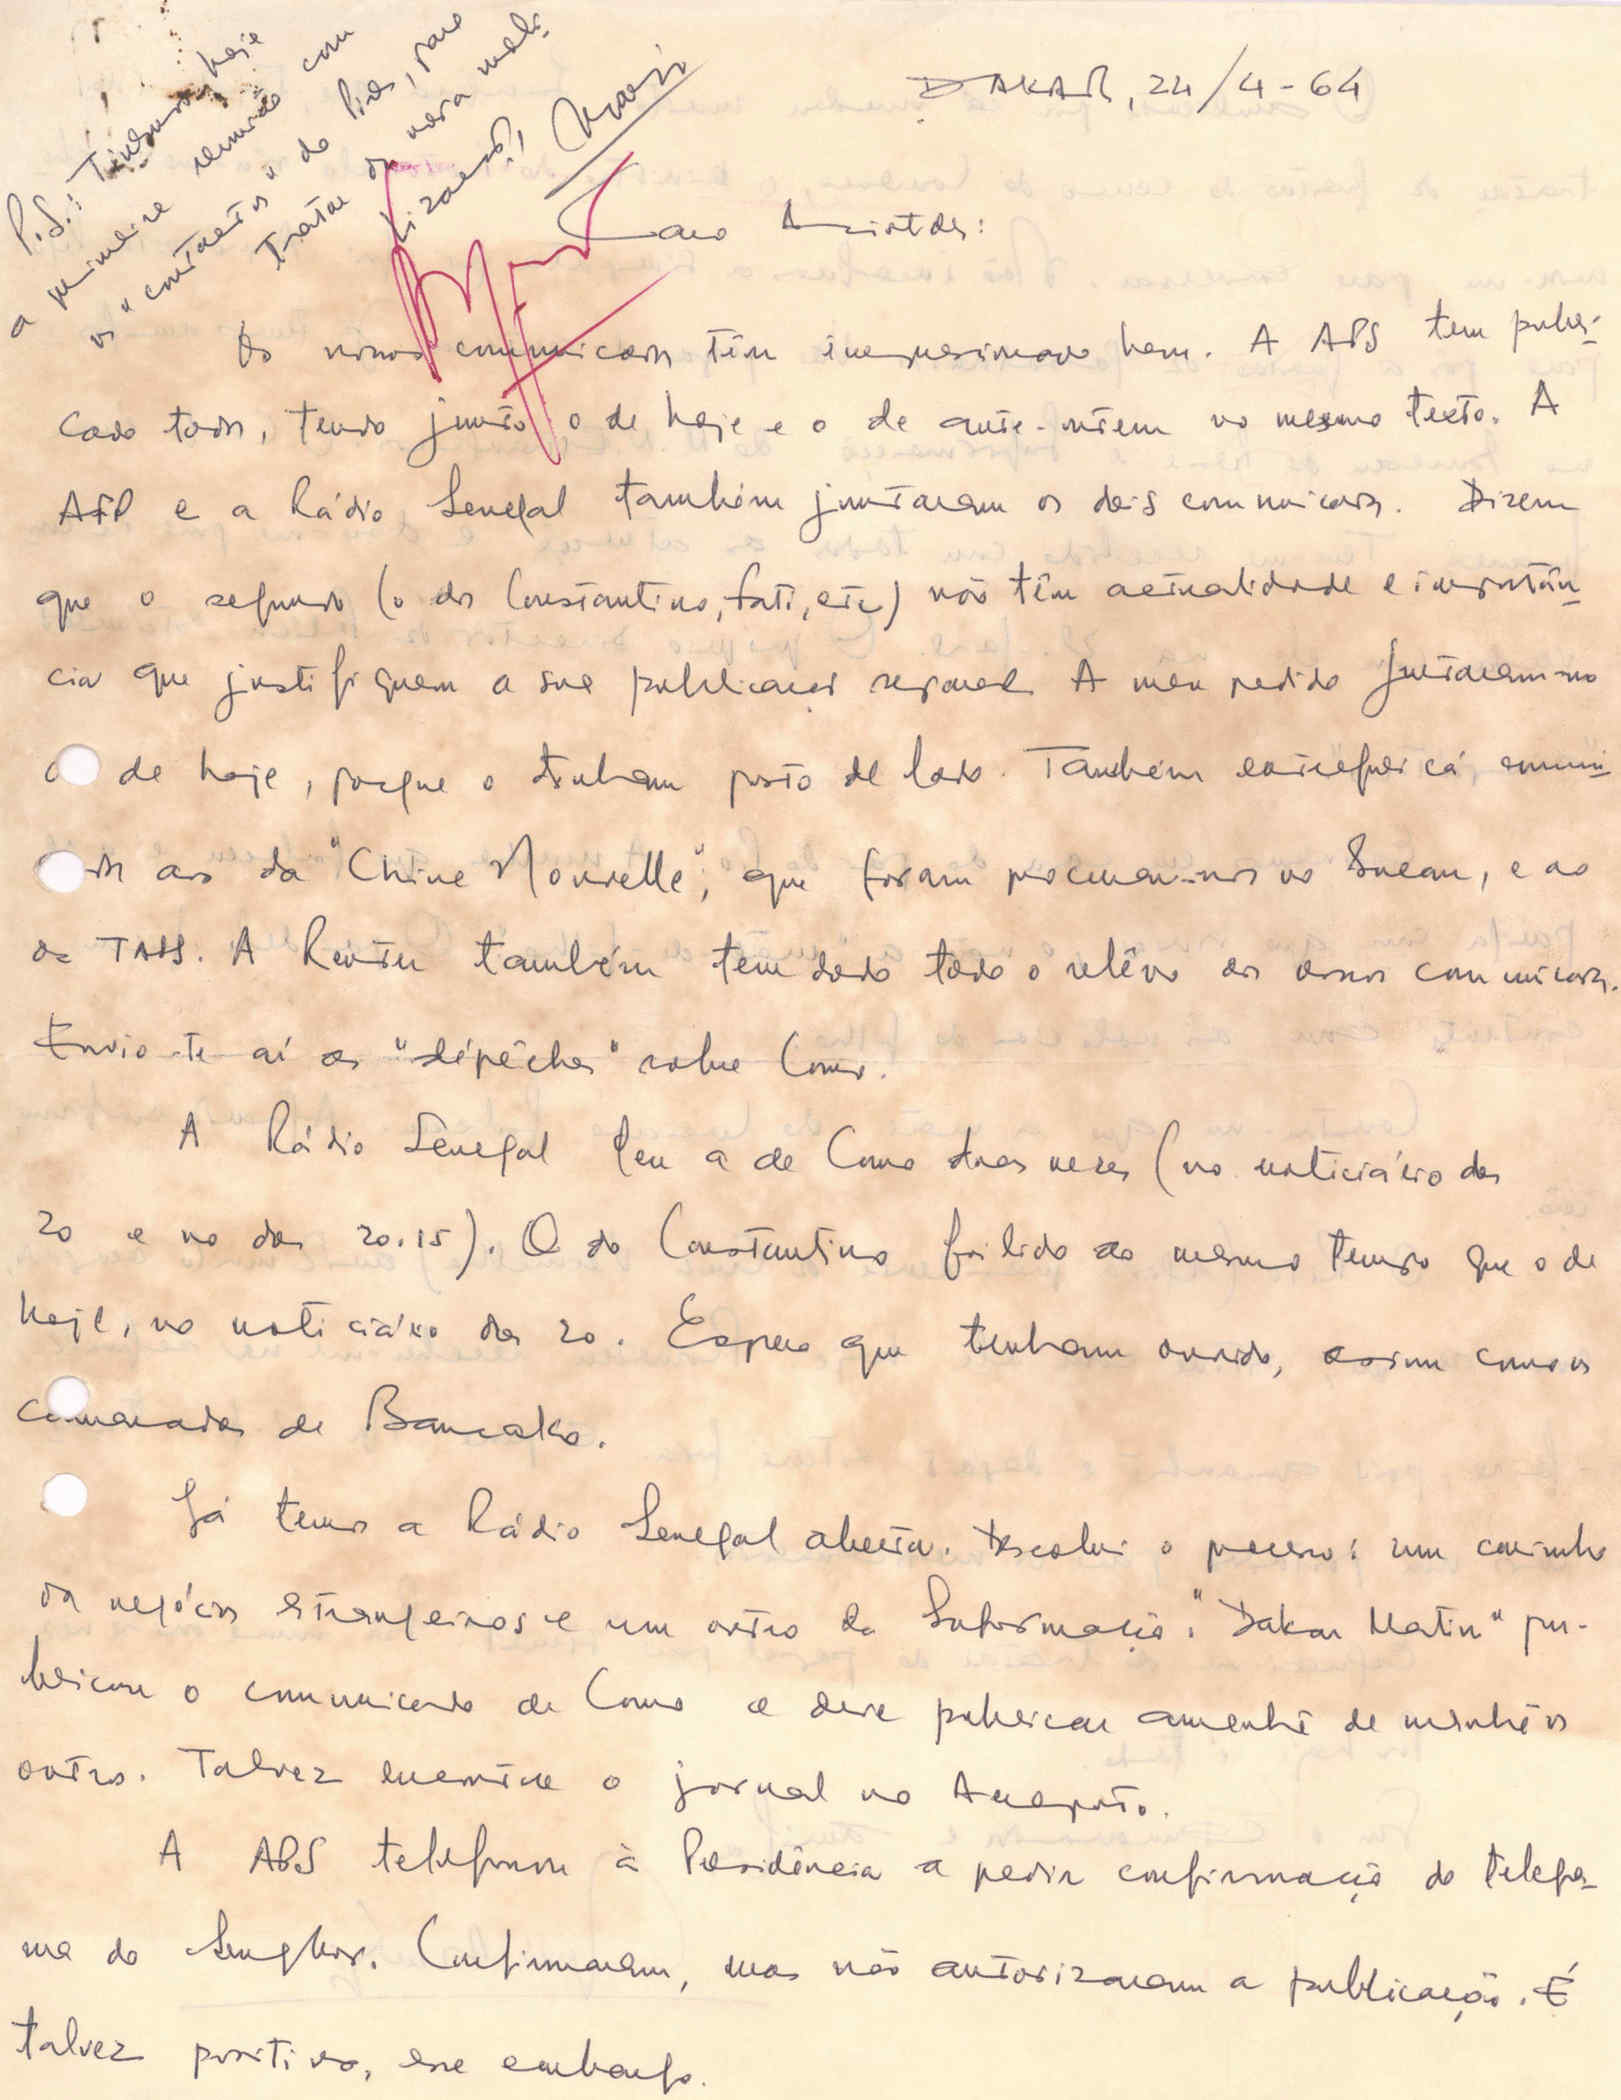 P.S.: Tivemos hoje
a primeira reunião com
os "contactos" do Pires, para
tratar da nossa mobi-
lização,
DAKAR, 24/4-64
Caro Aristides:
Os nossos comunicados têm impressionado bem. A APS tem publi-
cado todos, tendo junto o de hoje e o de ante-ontem no mesmo texto. A
AFP e a Rádio Senegal também juntaram os dois comunicados. Dizem
que o segundo (o do Constantino, Fati, etc) não têm actualidade e importân-
cia que justifiquem a sua publicação separada. A meu pedido juntaram-no
ao de hoje, porque o tinham posto de lado. Também entreguei cá comuni-
cados aos da "Chine Nouvelle", que foram procurar-nos no Bureau, e ao
da TASS. A Reuter também tem dado todo o relêvo aos nossos comunicados.
Envio-te aí as "dépêches" sobre Como.
A Rádio Senegal leu a de Como duas vezes (no noticiário das
20 e no das 20.15). O do Constantino foi lido ao mesmo tempo que o de
hoje, no noticiário das 20. Espero que tenham ouvido, assim como os
camaradas de Bamako.
Já temos a Rádio Senegal aberta. Descobri o processo: um carimbo
dos negócios estrangeiros e um outro da Informação. "Dakar Matin" pu-
blicou o comunicado de Como e deve publicar amanhã de manhã os
outros. Talvez encontre o jornal no Aeroporto.
A APS telefonou à Presidência a pedir confirmação do telegra-
ma do Senghor. Confirmaram, mas não autorizaram a publicação. É
talvez positivo, esse embargo.